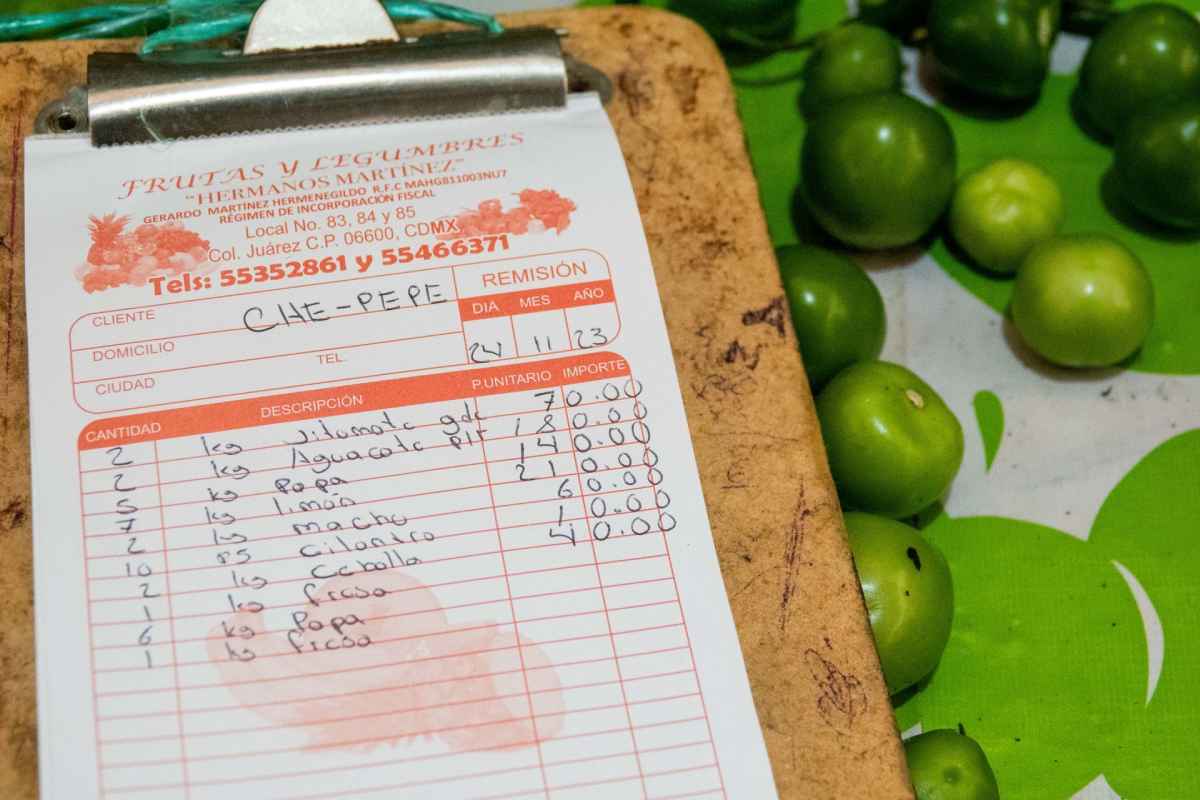 FRUTAS Y LEGUMBRES
"HERMANOS MARTÍNEZ"
GERARDO MARTÍNEZ HERMENEGILDO R.F.C MAHGB11003NU7
RÉGIMEN DE INCORPORACIÓN FISCAL
Local No. 83, 84 y 85
Col. Juárez C.P. 06600, CDMX
Tels: 55352861 y 55466371
CLIENTE CHE-PEPE REMISIÓN
DOMICILIO DIA MES AÑO
CIUDAD TEL. 24 11 23
CANTIDAD DESCRIPCIÓN P.UNITARIO IMPORTE
2 kg Jitomate gde 70.00
2 kg Aguacate 180.00
5 kg Papa 140.00
7 kg limón 210.00
2 kg macho 60.00
10 ps cilantro 10.00
2 kg Cebolla 40.00
1 kg fresa
6 kg Papa
1 kg fresa